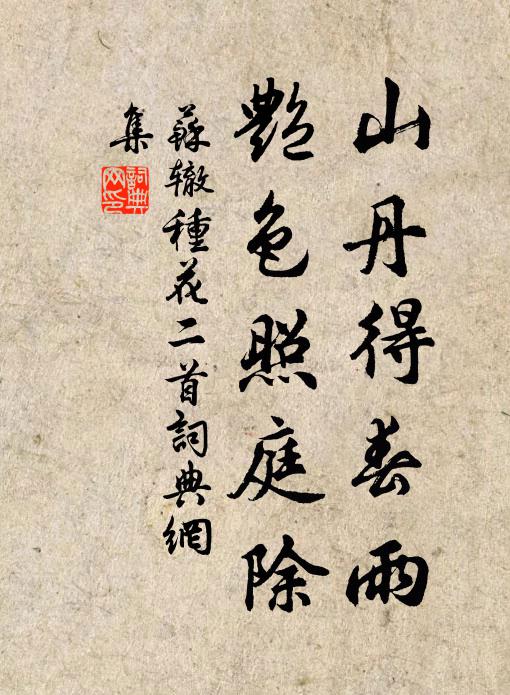 山丹得春雨
艷色照庭除
蘇辙種花二首詞典網
集
詞典网印